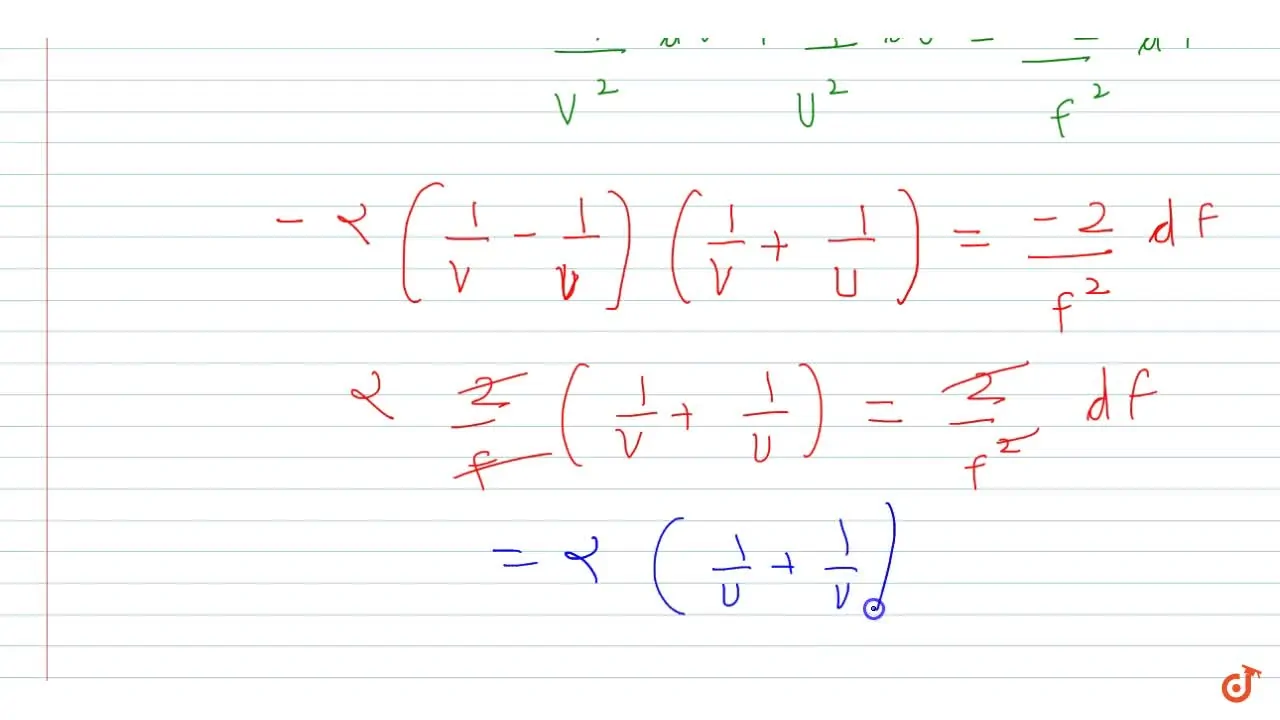 V² U² f²
- α (1/V - 1/U) (1/V + 1/U) = -2/f² df
α 2/f (1/V + 1/U) = 2/f² df
= α (1/U + 1/V)